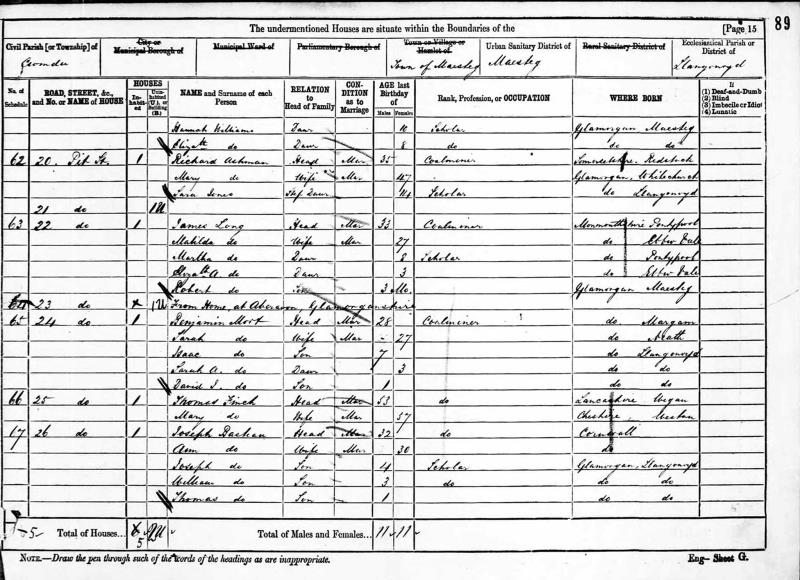 The undermentioned Houses are situate within the Boundaries of the [Page 15 89
Civil Parish [or Township] of City or Municipal Borough of Municipal Ward of Parliamentary Borough of Town or Village or Hamlet of Urban Sanitary District of Rural Sanitary District of Ecclesiastical Parish or District of
Cwmdu Town of Maesteg Maesteg Llangonoyd
No. of Schedule ROAD, STREET, &c., and No. or NAME of HOUSE HOUSES Inhabited Uninhabited (U.), or Building (B.) NAME and Surname of each Person RELATION to Head of Family CONDITION as to Marriage AGE last Birthday of Males Females Rank, Profession, or OCCUPATION WHERE BORN If (1) Deaf-and-Dumb (2) Blind (3) Imbecile or Idiot (4) Lunatic
Hannah Williams Daur 10 Scholar Glamorgan Maesteg
Elizath do Daur 8 do do do
62 20 Pit St. 1 Richard Ashman Head Mar 35 Coalminer Somersetshire. Redstock
Mary do Wife Mar 47 Glamorgan, Whitchurch
Sara Jones Step Daur 14 Scholar do Llangonoyd
21 do 1U
63 22 do 1 James Long Head Mar 33 Coalminer Monmouthshire Pontypool
Matilda do Wife Mar 27 do Ebbw Vale
Martha do Daur 8 Scholar do Pontypool
Elizath A. do Daur 3 do Ebbw Vale
Robert do Son 3 Mo. Glamorgan Maesteg
64 23 do 1U From Home, at Aberavon, Glamorganshire
65 24 do 1 Benjamin Mort Head Mar 28 Coalminer do Margam
Sarah do Wife Mar - 27 do Neath
Isaac do Son 7 do Llangonoyd
Sarah A. do Daur 3 do do
David J. do Son 1 do do
66 25 do 1 Thomas Finch Head Mar 53 do Lancashire Wigan
Mary do Wife Mar 57 Cheshire, Weston
17 26 do 1 Joseph Head Mar 32 do Cornwall
Ann do Wife Mar 30 do
Joseph do Son 4 Scholar Glamorgan, Llangonoyd
William do Son 3 do do do
Thomas do Son 1 do do
5 Total of Houses... 6 5 2U Total of Males and Females... 11 11
NOTE.—Draw the pen through such of the words of the headings as are inappropriate. Eng—Sheet G.